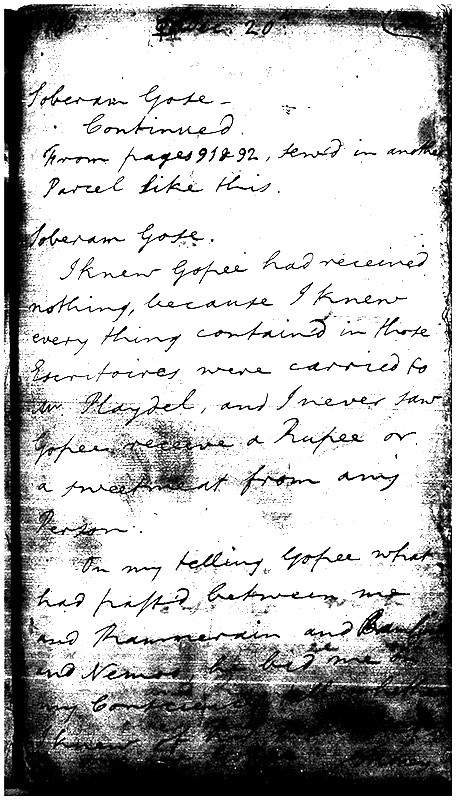 20.
Soberam Gose -
Continued.
From pages 91 & 92, sew'd in another
Parcel like this.
Soberam Gose.
I knew Gopee had received
nothing, because I knew
every thing contain'd in those
Escritoires were carried to
Mr Playdel, and I never saw
Gopee receive a Rupee or
a sweetmeat from any
Person.
On my telling Gopee what
had passed between me
and Ramnerain and
and he bid me
my